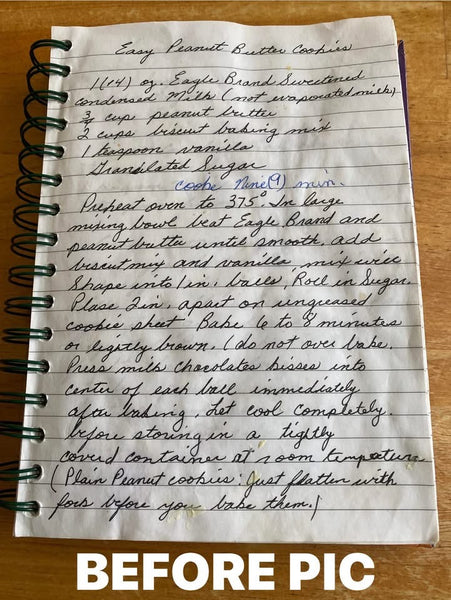 Easy Peanut Butter Cookies
1 (14) oz. Eagle Brand Sweetened
condensed Milk (not evaporated milk)
3/4 cup peanut butter
2 cups biscuit baking mix
1 teaspoon vanilla
Granulated Sugar
cooke Nine (9) min.
Prepeat oven to 375° In large
mixing bowl beat Eagle Brand and
peanut butter until smooth, add
biscuit mix and vanilla mix well
Shape into 1 in. balls, Roll in Sugar.
Plase 2 in. apart on ungreased
cookie sheet Bake 6 to 8 minutes
or lightly brown. (do not over bake.
Press milk chocolates kisses into
center of each ball immediately
after baking. Let cool completely.
before storing in a tightly
coverd container at room temperature
(Plain Peanut cookies: Just flatten with
fork before you bake them.)
BEFORE PIC